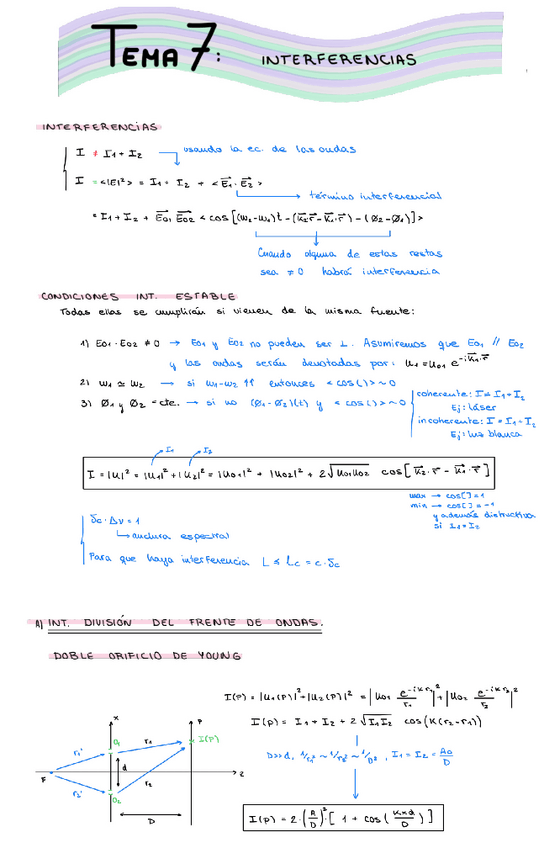 TEMA 7: INTERFERENCIAS
INTERFERENCIAS
I ≠ I1 + I2 → usando la ec. de las ondas
I = <|E|²> = I1 + I2 + <E1⃗ · E2⃗>
término interferencial
= I1 + I2 + E01⃗ E02⃗ < cos [(w2-w1)t - (k2⃗ r⃗ - k1⃗ · r⃗) - (ø2 - ø1)] >
Cuando alguna de estas restas
sea ≠ 0 habrá interferencia
CONDICIONES INT. ESTABLE
Todas ellas se cumplirán si vienen de la misma fuente:
1) E01 · E02 ≠ 0 → E01 y E02 no pueden ser ⊥. Asumiremos que E01 // E02
y las ondas serán denotadas por: u1 = u01 e^{-i k1⃗ · r⃗}
2) w1 ≃ w2 → si w1-w2 ↑↑ entonces < cos() > ~ 0
3) ø1 y ø2 = cte. → si no (ø1-ø2)(t) y < cos() > ~ 0
coherente: I ≠ I1 + I2
Ej: láser
incoherente: I = I1 + I2
Ej: luz blanca
I1 I2
I = |u|² = |u1|² + |u2|² = |u01|² + |u02|² + 2√u01u02 cos [k2⃗ · r⃗ - k1⃗ · r⃗]
max → cos[] = 1
min → cos[] = -1
y además distructiva
si I1 = I2
δc · Δν = 1
anchura espectral
Para que haya interferencia L ≤ Lc = c · δc
A) INT. DIVISIÓN DEL FRENTE DE ONDAS.
DOBLE ORIFICIO DE YOUNG
I(P) = |u1(P)|² + |u2(P)|² = |u01 e^{-ikr1}/r1|² + |u02 e^{-ikr2}/r2|²
I(P) = I1 + I2 + 2√I1I2 cos(k(r2-r1))
D>>d, 1/r1² ~ 1/r2² ~ 1/D², I1 = I2 = A0/D
I(P) = 2·(A/D)² [1 + cos(kxd/D)]
x
P
O1
r1
I(P)
r1'
F
d
r2
z
r2'
O2
D